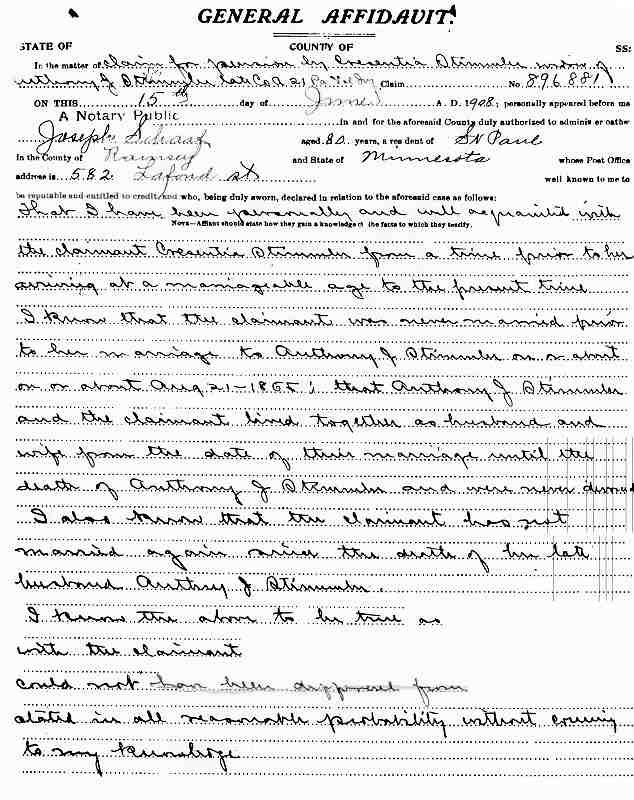 GENERAL AFFIDAVIT.
STATE OF COUNTY OF SS:
In the matter of claim for pension by Cresentia Stimmler widow of
Anthony J Stimmler late Co A 21 Pa Vol Claim No. 896881
ON THIS 15th day of June A. D. 1908; personally appeared before me
A Notary Public in and for the aforesaid County duly authorized to adminis er oathe
Joseph Schaaf aged 80 years, a res dent of St Paul
In the County of Ramsey and State of Minnesota whose Post Office
address is 582 Lafond st well known to me to
be reputable and entitled to credit, and who, being duly sworn, declared in relation to the aforesaid case as follows:
That I have been personally and well acquainted with
NOTE—Affiant should state how they gain a knowledge of the facts to which they testify.
the claimant Cresentia Stimmler from a time prior to her
arriving at a marriageable age to the present time
I know that the claimant was never married prior
to her marriage to Anthony J Stimmler on or about
on or about Aug 21-1865; that Anthony J Stimmler
and the claimant lived together as husband and
wife from the date of their marriage until the
death of Anthony J Stimmler and were never divorced
I also know that the claimant has not
married again since the death of her late
husband Anthony J Stimmler.
I know the above to be true as
with the claimant
could not has been from
stated in all reasonable probability without coming
to my knowledge